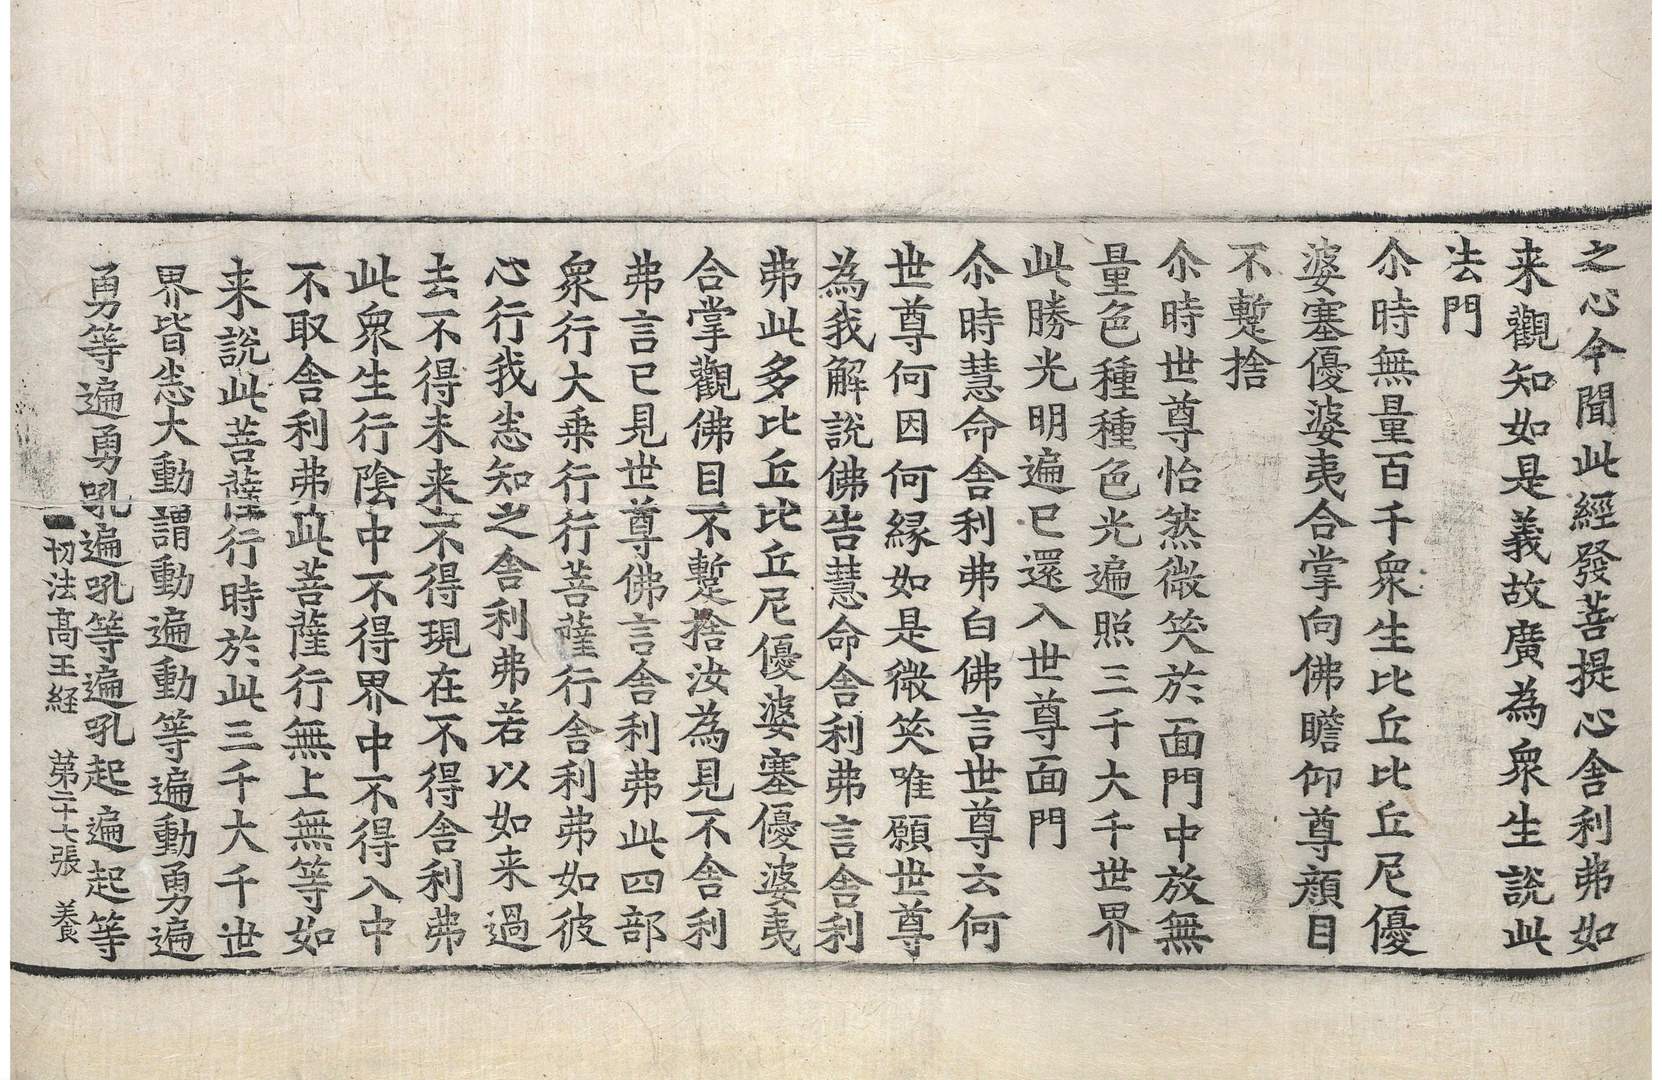 之心今聞此經發菩提心舍利弗如
来觀知如是義故廣為衆生說此
法門
尒時無量百千衆生比丘比丘尼優
婆塞優婆夷合掌向佛瞻仰尊顔目
不蹔捨
尒時世尊怡然微笑於面門中放無
量色種種色光遍照三千大千世界
此勝光明遍已還入世尊面門
尒時慧命舍利弗白佛言世尊云何
世尊何因何縁如是微笑唯願世尊
為我解說佛告慧命舍利弗言舍利
弗此多比丘比丘尼優婆塞優婆夷
合掌觀佛目不蹔捨汝為見不舍利
弗言已見世尊佛言舍利弗此四部
衆行大乗行行菩薩行舍利弗如彼
心行我悉知之舍利弗若以如来過
去不得未来不得現在不得舍利弗
此衆生行陰中不得界中不得入中
不取舍利弗此菩薩行無上無等如
来說此菩薩行時於此三千大千世
界皆悉大動謂動遍動等遍動勇遍
勇等遍勇吼遍吼等遍吼起遍起等
一切法髙王経　第二十七張　養